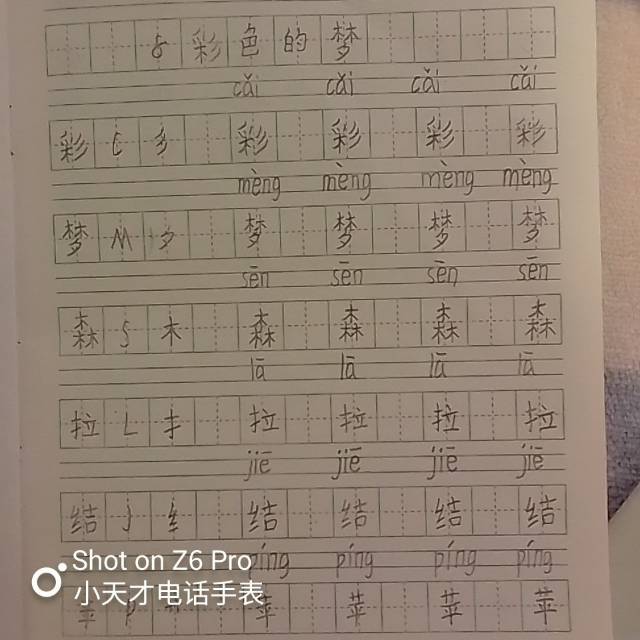 8 彩色的梦
cǎi cǎi cǎi cǎi
彩 C 彡 彩 彩 彩 彩
mèng mèng mèng mèng
梦 M 夕 梦 梦 梦 梦
sēn sēn sēn sēn
森 S 木 森 森 森 森
lā lā lā lā
拉 L 扌 拉 拉 拉 拉
jiē jiē jiē jiē
结 J 纟 结 结 结 结
píng píng píng píng
苹 P 苹 苹 苹 苹
Shot on Z6 Pro
小天才电话手表